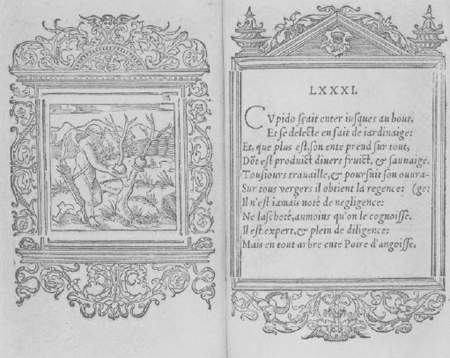 LXXXI.
CVpido sçait enter iusques au bout,
Et se delecte en fait de iardinaige:
Et, que plus est, son ente prend sur tout,
Dõt est produict diuers fruict, & sauuaige.
Tousiours trauaille, & poursuit son ouura-
Sur tous vergers il obtient la regence: (ge:
Il n'est iamais noté de negligence:
Ne lascheté, aumoins qu'on le cognoisse.
Il est expert, & plein de diligence:
Mais en tout arbre ente Poire d'angoisse.